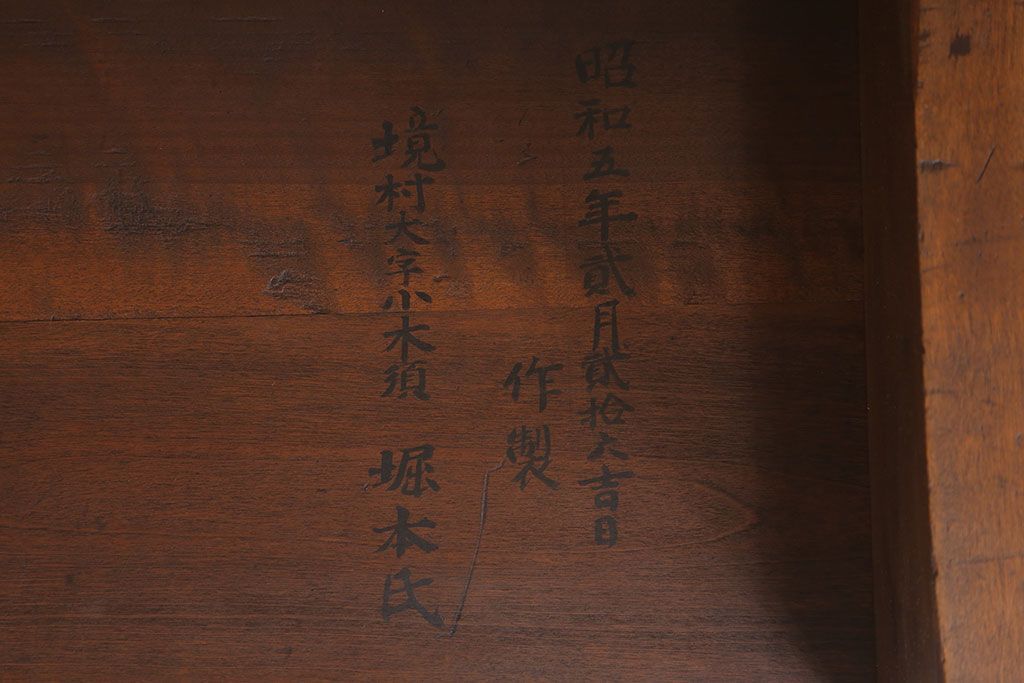 昭和五年貳月貳拾六吉日
作製
境村大字小木須 堀本氏